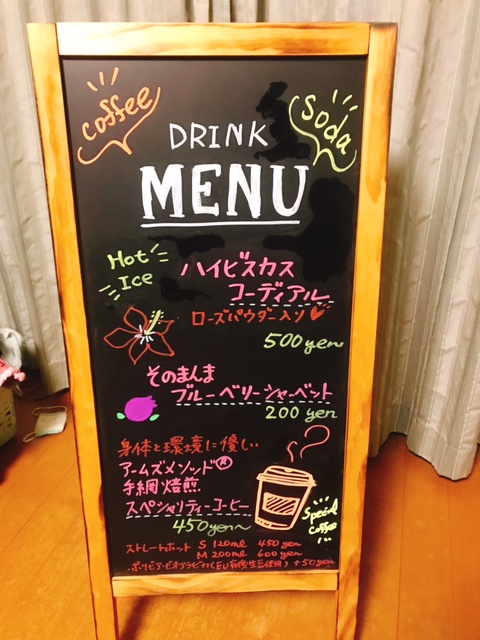 coffee
Soda
DRINK
MENU
Hot
Ice
ハイビスカス
コーディアル
ローズパウダー入り
500yen
そのまんま
ブルーベリーシャーベット
200 yen
身体と環境に優しい
アームズメソッド®
手網焙煎
スペシャリティーコーヒー
450yen
Special
coffee
ストレートホット S 120ml 450yen
M 200ml 600yen
+50yen